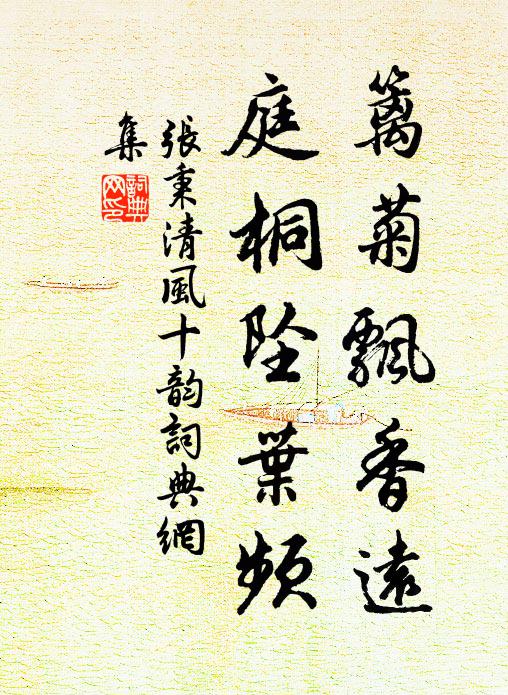 篱菊飄香遠
庭桐坠葉頻
張秉清風十韵詞典網
集
詞典
网印